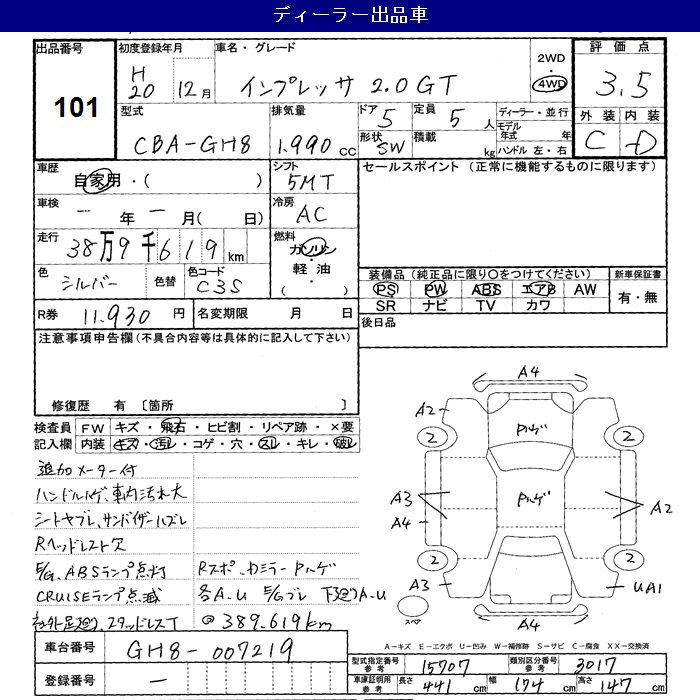 ディーラー出品車
出品番号 101
初度登録年月 H20 12月
車名・グレード インプレッサ 2.0GT
2WD 4WD
評価点 3.5
外装 内装
C D
型式 CBA-GH8
排気量 1.990 cc
ドア 5
定員 5 人
ディーラー・並行
モデル年式 年
ハンドル 左・右
形状 SW
積載 kg
車歴 自家用・( )
シフト 5MT
セールスポイント (正常に機能するものに限ります)
車検 ー 年 ー 月( 日)
冷房 AC
走行 38万9千619km
燃料 ガソリン・軽油・( )
色 シルバー 色替
色コード C3S
装備品(純正品に限り○をつけてください)
新車保証書
PS PW ABS エアB AW
有・無
SR ナビ TV カワ
R券 11.930 円
名変期限 月 日
後日品
注意事項申告欄(不具合内容等は具体的に記入して下さい)
修復歴 有 〔箇所 〕
検査員 FW キズ・飛石・ヒビ割・リペア跡・×要
記入欄 内装 キズ・汚レ・コゲ・穴・スレ・キレ・破レ
追加メーター付
ハンドルハゲ、車内汚れ大
シートヤブレ、サンバイザーハズレ
Rヘッドレスト欠
E/G、ABSランプ点灯 Rスポ、カミラーPハゲ
CRUISEランプ点滅 各A.U E/Gブレ 下廻りA.U
社外足廻り、スタッドレスT @389.619km
A4
A2
2 Pハゲ 2
A3
Pハゲ
A2
A4
2 2
A3
UA1
スペア
A4
A-キズ E-エクボ U-凹み W-補修跡 S-サビ C-腐食 XX-交換済
車台番号 GH8-007219
登録番号 ー
型式指定番号 参考 15707
類別区分番号 参考 3017
車庫証明用 参考 長さ 441 幅 174 高さ 147 cm